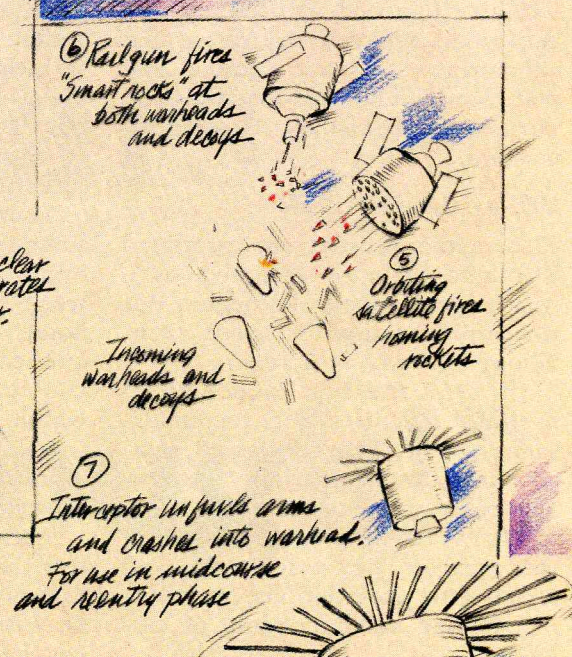 6 Railgun fires
"Smart rocks" at
both warheads
and decoys
clear
rates
5
Orbiting
satellite fires
homing
rockets
Incoming
warheads and
decoys
7
Interceptor unfurls arms
and crashes into warhead.
For use in midcourse
and reentry phase